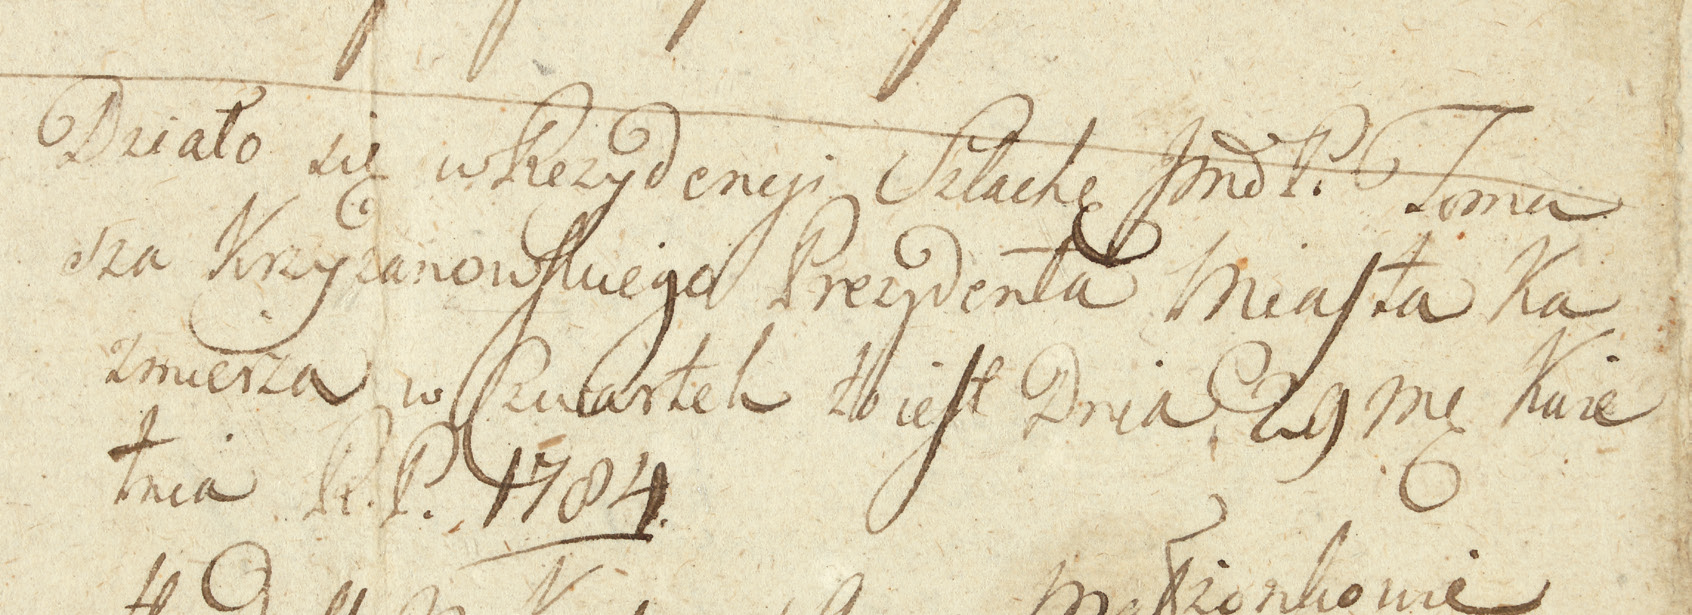 Działo się w Rezydencyi Szlachę Jmć P. Toma
sza Krzyżanowskiego Prezydenta Miasta Ka
zmierza w Czwartek to iest Dnia 29 mę Kwie
tnia R. P. 1784.
Małżonkowie